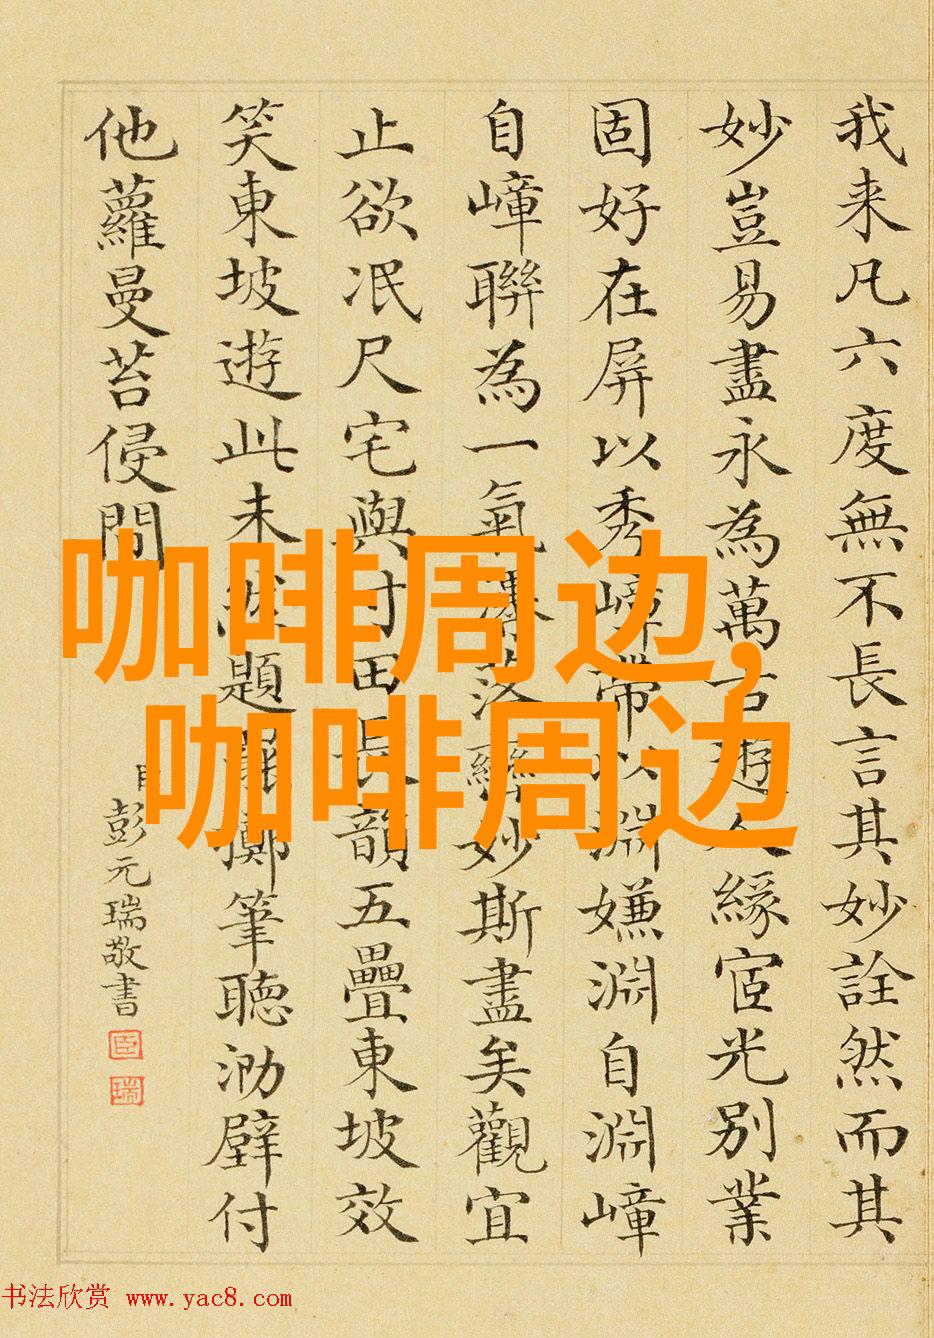 我来凡六度無不長言其妙詮然而其
妙豈易盡永為萬古遊人緣宧光別業
固好在屏以秀嶂帶以淵嫌淵自淵嶂
自嶂聯為一氣落妙斯盡矣觀宜
止欲泯尺宅與寸田長韻五疊東坡效
笑東坡遊此未然題擲筆聽泐壁付
他蘿曼苔侵間
臣彭元瑞敬書
臣
瑞
咖啡周边,
咖啡周边
书法欣赏 www.yac8.com